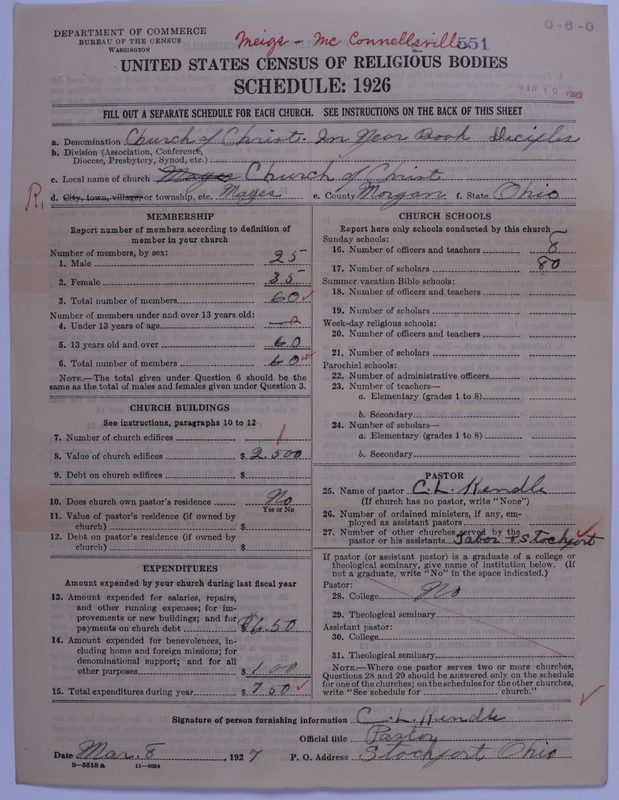 DEPARTMENT OF COMMERCE
BUREAU OF THE CENSUS
WASHINGTON
Meigs - McConnellsville
551
0-6-0
UNITED STATES CENSUS OF RELIGIOUS BODIES
SCHEDULE: 1926
FILL OUT A SEPARATE SCHEDULE FOR EACH CHURCH. SEE INSTRUCTIONS ON THE BACK OF THIS SHEET
a. Denomination Church of Christ. In Year Book Disciples
b. Division (Association, Conference,
Diocese, Presbytery, Synod, etc.)
c. Local name of church Church of Christ
R
d. City, town, village, or township, etc. Mages e. County Morgan f. State Ohio
MEMBERSHIP
Report number of members according to definition of
member in your church
Number of members, by sex:
1. Male 25
2. Female 35
3. Total number of members 60
Number of members under and over 13 years old:
4. Under 13 years of age 0
5. 13 years old and over 60
6. Total number of members 60
NOTE.—The total given under Question 6 should be the
same as the total of males and females given under Question 3.
CHURCH BUILDINGS
See instructions, paragraphs 10 to 12
7. Number of church edifices 1
8. Value of church edifices $ 2,500
9. Debt on church edifices $
10. Does church own pastor's residence No
Yes or No
11. Value of pastor's residence (if owned by
church) $
12. Debt on pastor's residence (if owned by
church) $
EXPENDITURES
Amount expended by your church during last fiscal year
13. Amount expended for salaries, repairs,
and other running expenses; for im-
provements or new buildings; and for
payments on church debt $650
14. Amount expended for benevolences, in-
cluding home and foreign missions; for
denominational support; and for all
other purposes $ 100
15. Total expenditures during year $ 750
CHURCH SCHOOLS
Report here only schools conducted by this church
Sunday schools:
16. Number of officers and teachers 8
17. Number of scholars 80
Summer vacation Bible schools:
18. Number of officers and teachers
19. Number of scholars
Week-day religious schools:
20. Number of officers and teachers
21. Number of scholars
Parochial schools:
22. Number of administrative officers
23. Number of teachers—
a. Elementary (grades 1 to 8)
b. Secondary
24. Number of scholars—
a. Elementary (grades 1 to 8)
b. Secondary
PASTOR
25. Name of pastor C. L. Kendle
(If church has no pastor, write "None")
26. Number of ordained ministers, if any, em-
ployed as assistant pastors
27. Number of other churches served by the
pastor or his assistants Tabor & Stockport
If pastor (or assistant pastor) is a graduate of a college or
theological seminary, give name of institution below. (If
not a graduate, write "No" in the space indicated.)
Pastor:
28. College No
29. Theological seminary
Assistant pastor:
30. College
31. Theological seminary
NOTE.—Where one pastor serves two or more churches,
Questions 28 and 29 should be answered only on the schedule
for one of the churches; on the schedules for the other churches,
write "See schedule for church."
Signature of person furnishing information C. L. Kendle
Official title Pastor
Date Mar. 8, 1927 P. O. Address Stockport Ohio
8-5518 a 11-9054